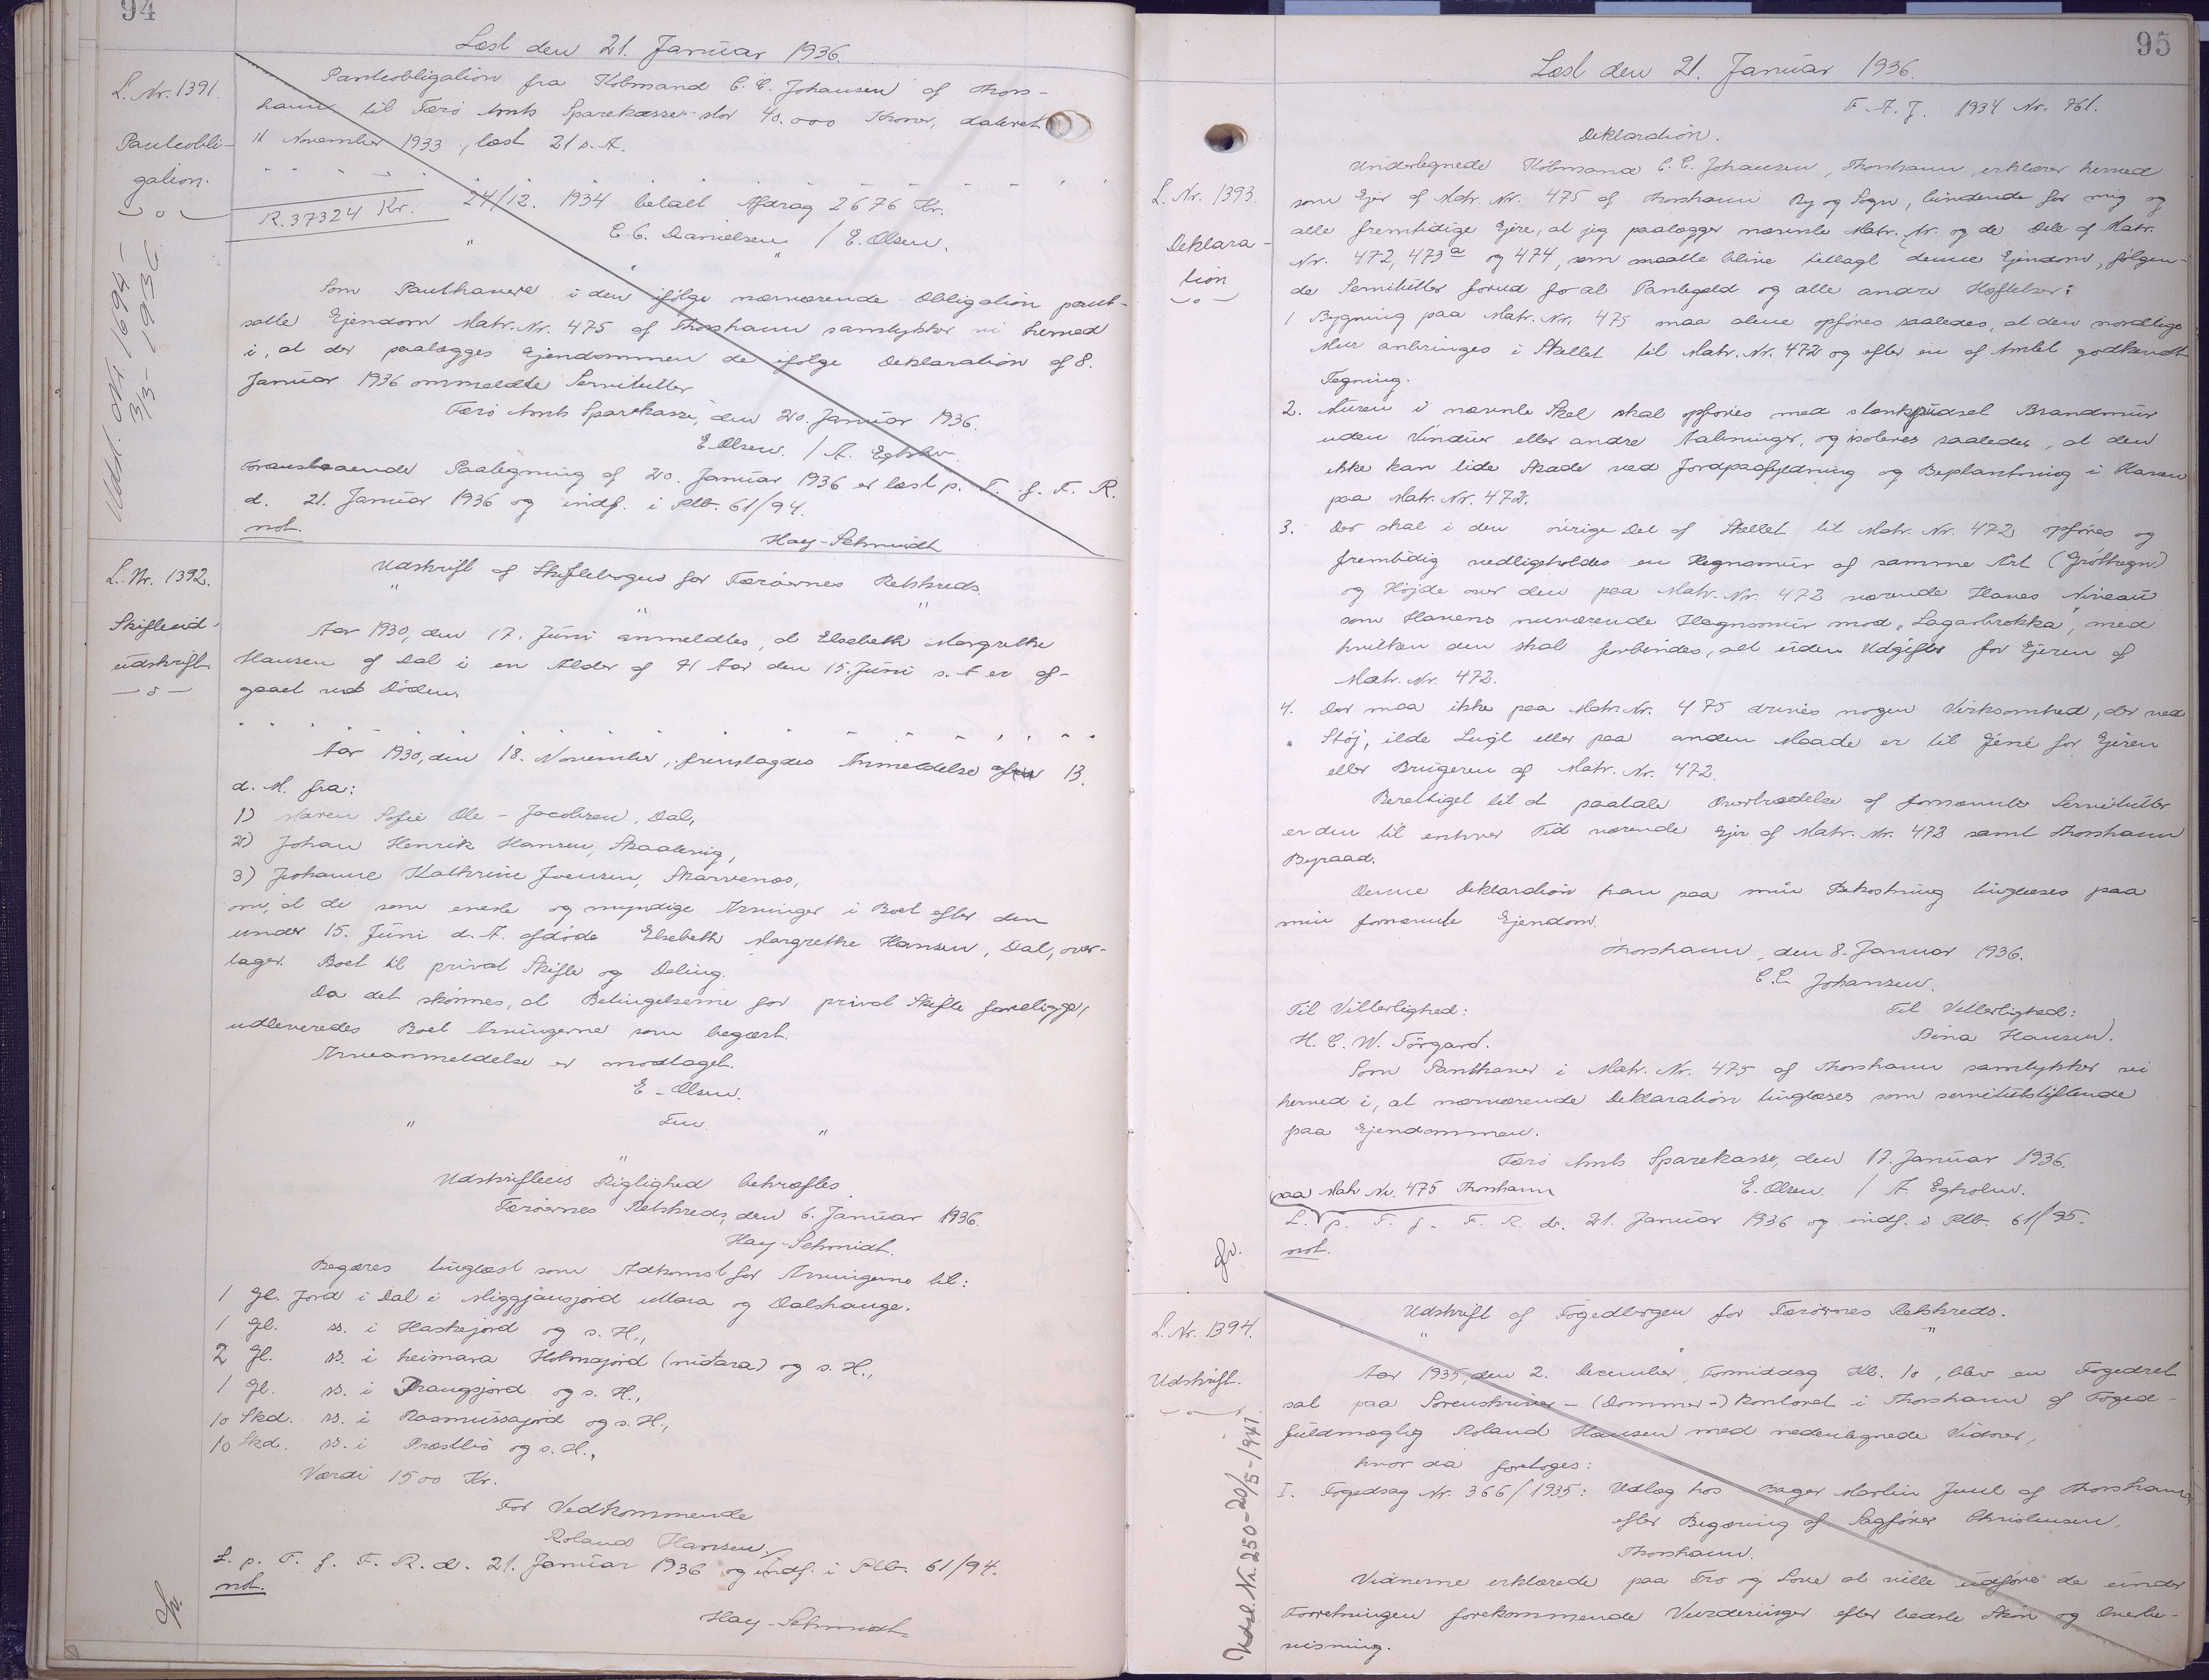 94
Læst den 21. Januar 1936.
L. Nr. 1391.
Panteobli-
gation.
Udsl. Nr. 1694 -
3/3 - 1936
Panteobligation fra Købmand C. C. Johansen af Thors-
havn til Færø Amts Sparekasse stor 40.000 Kroner, dateret
11 November 1933, læst 21 s. A.
R. 37324 Kr. 24/12. 1934 betalt Afdrag 2676 Kr.
E. C. Danielsen / E. Olsen.
Som Panthavere i den ifølge nærværende Obligation pant-
satte Ejendom Matr. Nr. 475 af Thorshavn samtykker vi herved
i, at der paalægges Ejendommen de ifølge Deklaration af 8.
Januar 1936 ommeldte Servitutter
Færø Amts Sparekasse, den 20. Januar 1936.
E. Olsen. / A. Egholm.
Foranstaaende Paategning af 20. Januar 1936 er læst p. T. f. F. R.
d. 21. Januar 1936 og indf. i Ptb. 61/94.
not.
Hay-Schmidt
L. Nr. 1392.
Skifteud-
udskrift
Udskrift af Skiftebogen for Færøernes Retskreds.
" " "
Aar 1930, den 17. Juni anmeldtes, at Elsebeth Margrethe
Hansen af Dal i en Alder af 71 Aar den 15. Juni s. A. er af-
gaaet ved Døden.
Aar 1930, den 18. November, fremlagdes Anmeldelse af 13.
d. M. fra:
1) Maren Sofie Ole-Jacobsen, Dal,
2) Johan Henrik Hansen, Skaalevig,
3) Johanne Kathrine Joensen, Skarvenæs,
om, at de som eneste og myndige Arvinger i Boet efter den
under 15. Juni d. A. afdøde Elsebeth Margrethe Hansen, Dal, over-
tager Boet til privat Skifte og Deling.
Da det skønnes, at Betingelserne for privat Skifte foreligger,
udleveredes Boet Arvingerne som begært.
Arveanmeldelse er modtaget.
E. Olsen.
Fm.
" "
"
Udskriftens Rigtighed bekræftes
Færøernes Retskreds, den 6. Januar 1936.
Hay-Schmidt.
Begæres tinglæst som Adkomst for Arvingerne til:
1 Gl. Jord i Dal i Miggjansjord uttara og Dalshauge.
1 Gl. ss. i Haskejord og s. H.,
2 Gl. ss. i heimaraHolmajord (niðara) og s. H.,
1 Gl. ss. i Draugsjord og s. H.,
10 Skd. ss. i Rasmussajord og s. H.,
10 Skd. ss. i Præstlis og s. H.,
Værdi 1500 Kr.
For Vedkommende
Roland Hansen.
L. p. T. f. F. R. d. 21. Januar 1936 og indf. i Ptb. 61/94.
not.
Hay-Schmidt
95
Læst den 21. Januar 1936.
L. Nr. 1393.
Deklara-
tion
F. A. J. 1934 Nr. 761.
Deklaration.
Undertegnede Købmand C. C. Johansen, Thorshavn erklærer herved
som Ejer af Matr. Nr. 475 af Thorshavn By og Sogn, bindende for mig og
alle fremtidige Ejere, at jeg paalægger nævnte Matr. Nr. og de Dele af Matr.
Nr. 472, 473a og 474, som maatte blive tillagt denne Ejendom, følgen-
de Servitutter forud for al Pantegæld og alle andre Hæftelser:
1 Bygning paa Matr. Nr. 475 maa alene opføres saaledes, at den nordlige
Mur anbringes i Skellet til Matr. Nr. 472 og efter en af Amtet godkendt
Tegning.
2. Muren i nævnte Skel skal opføres med stenkpudset Brandmur
uden Vinduer eller andre Aabninger, og isoleres saaledes, at den
ikke kan lide Skade ved Jordpaafyldning og Beplantning i Haven
paa Matr. Nr. 472.
3. Der skal i den øvrige Del af Skellet til Matr. Nr. 472 opføres og
fremtidig vedligeholdes en Hegnsmur af samme Art (Gróthegn)
og Højde over den paa Matr. Nr. 472 værende Haves Niveau
som Havens nuværende Hegnsmur mod "Lagarbrekka", med
hvilken den skal forbindes, alt uden Udgifter for Ejeren af
Matr. Nr. 472.
4. Der maa ikke paa Matr. Nr. 475 drives nogen Virksomhed, der ved
Støj, ilde Lugt eller paa anden Maade er til Gene for Ejeren
eller Brugeren af Matr. Nr. 472.
Berettiget til at paatale Overtrædelse af fornævnte Servitutter
er den til enhver Tid værende Ejer af Matr. Nr. 472 samt Thorshavn
Byraad.
Denne Deklaration kan paa min Bekostning tinglæses paa
min fornævnte Ejendom.
Thorshavn, den 8. Januar 1936.
C. C. Johansen.
Til Vitterlighed: Til Vitterlighed:
H. C. W. Tórgarð. Bina Hansen.
Som Panthaver i Matr. Nr. 475 af Thorshavn samtykker vi
herved i, at nærværende Deklaration tinglæses som servitutstiftende
paa Ejendommen.
Færø Amts Sparekasse, den 17. Januar 1936.
E. Olsen. / A. Egholm.
paa Matr. Nr. 475 Thorshavn
L. p. T. f. F. R. d. 21. Januar 1936 og indf. i Ptb. 61/95.
not.
L. Nr. 1394.
Udskrift.
Udsl. Nr. 250 - 20/5 - 1941
Udskrift af Fogedbogen for Færøernes Retskreds.
" " "
Aar 1935, den 2. December, Formiddag Kl. 10, blev en Fogedret
sat paa Sorenskriver- (Dommer-) Kontoret i Thorshavn af Foged-
fuldmægtig Roland Hansen med nedentegnede Vidner,
hvor da foretoges:
I. Fogedsag Nr. 366/1935: Udlæg hos Bager Martin Juul af Thorshavn
efter Begæring af Sagfører Christensen,
Thorshavn.
Vidnerne erklærede paa Tro og Love at ville udføre de under
Forretningen forekommende Vurderinger efter bedste Skøn og Overbe-
visning.